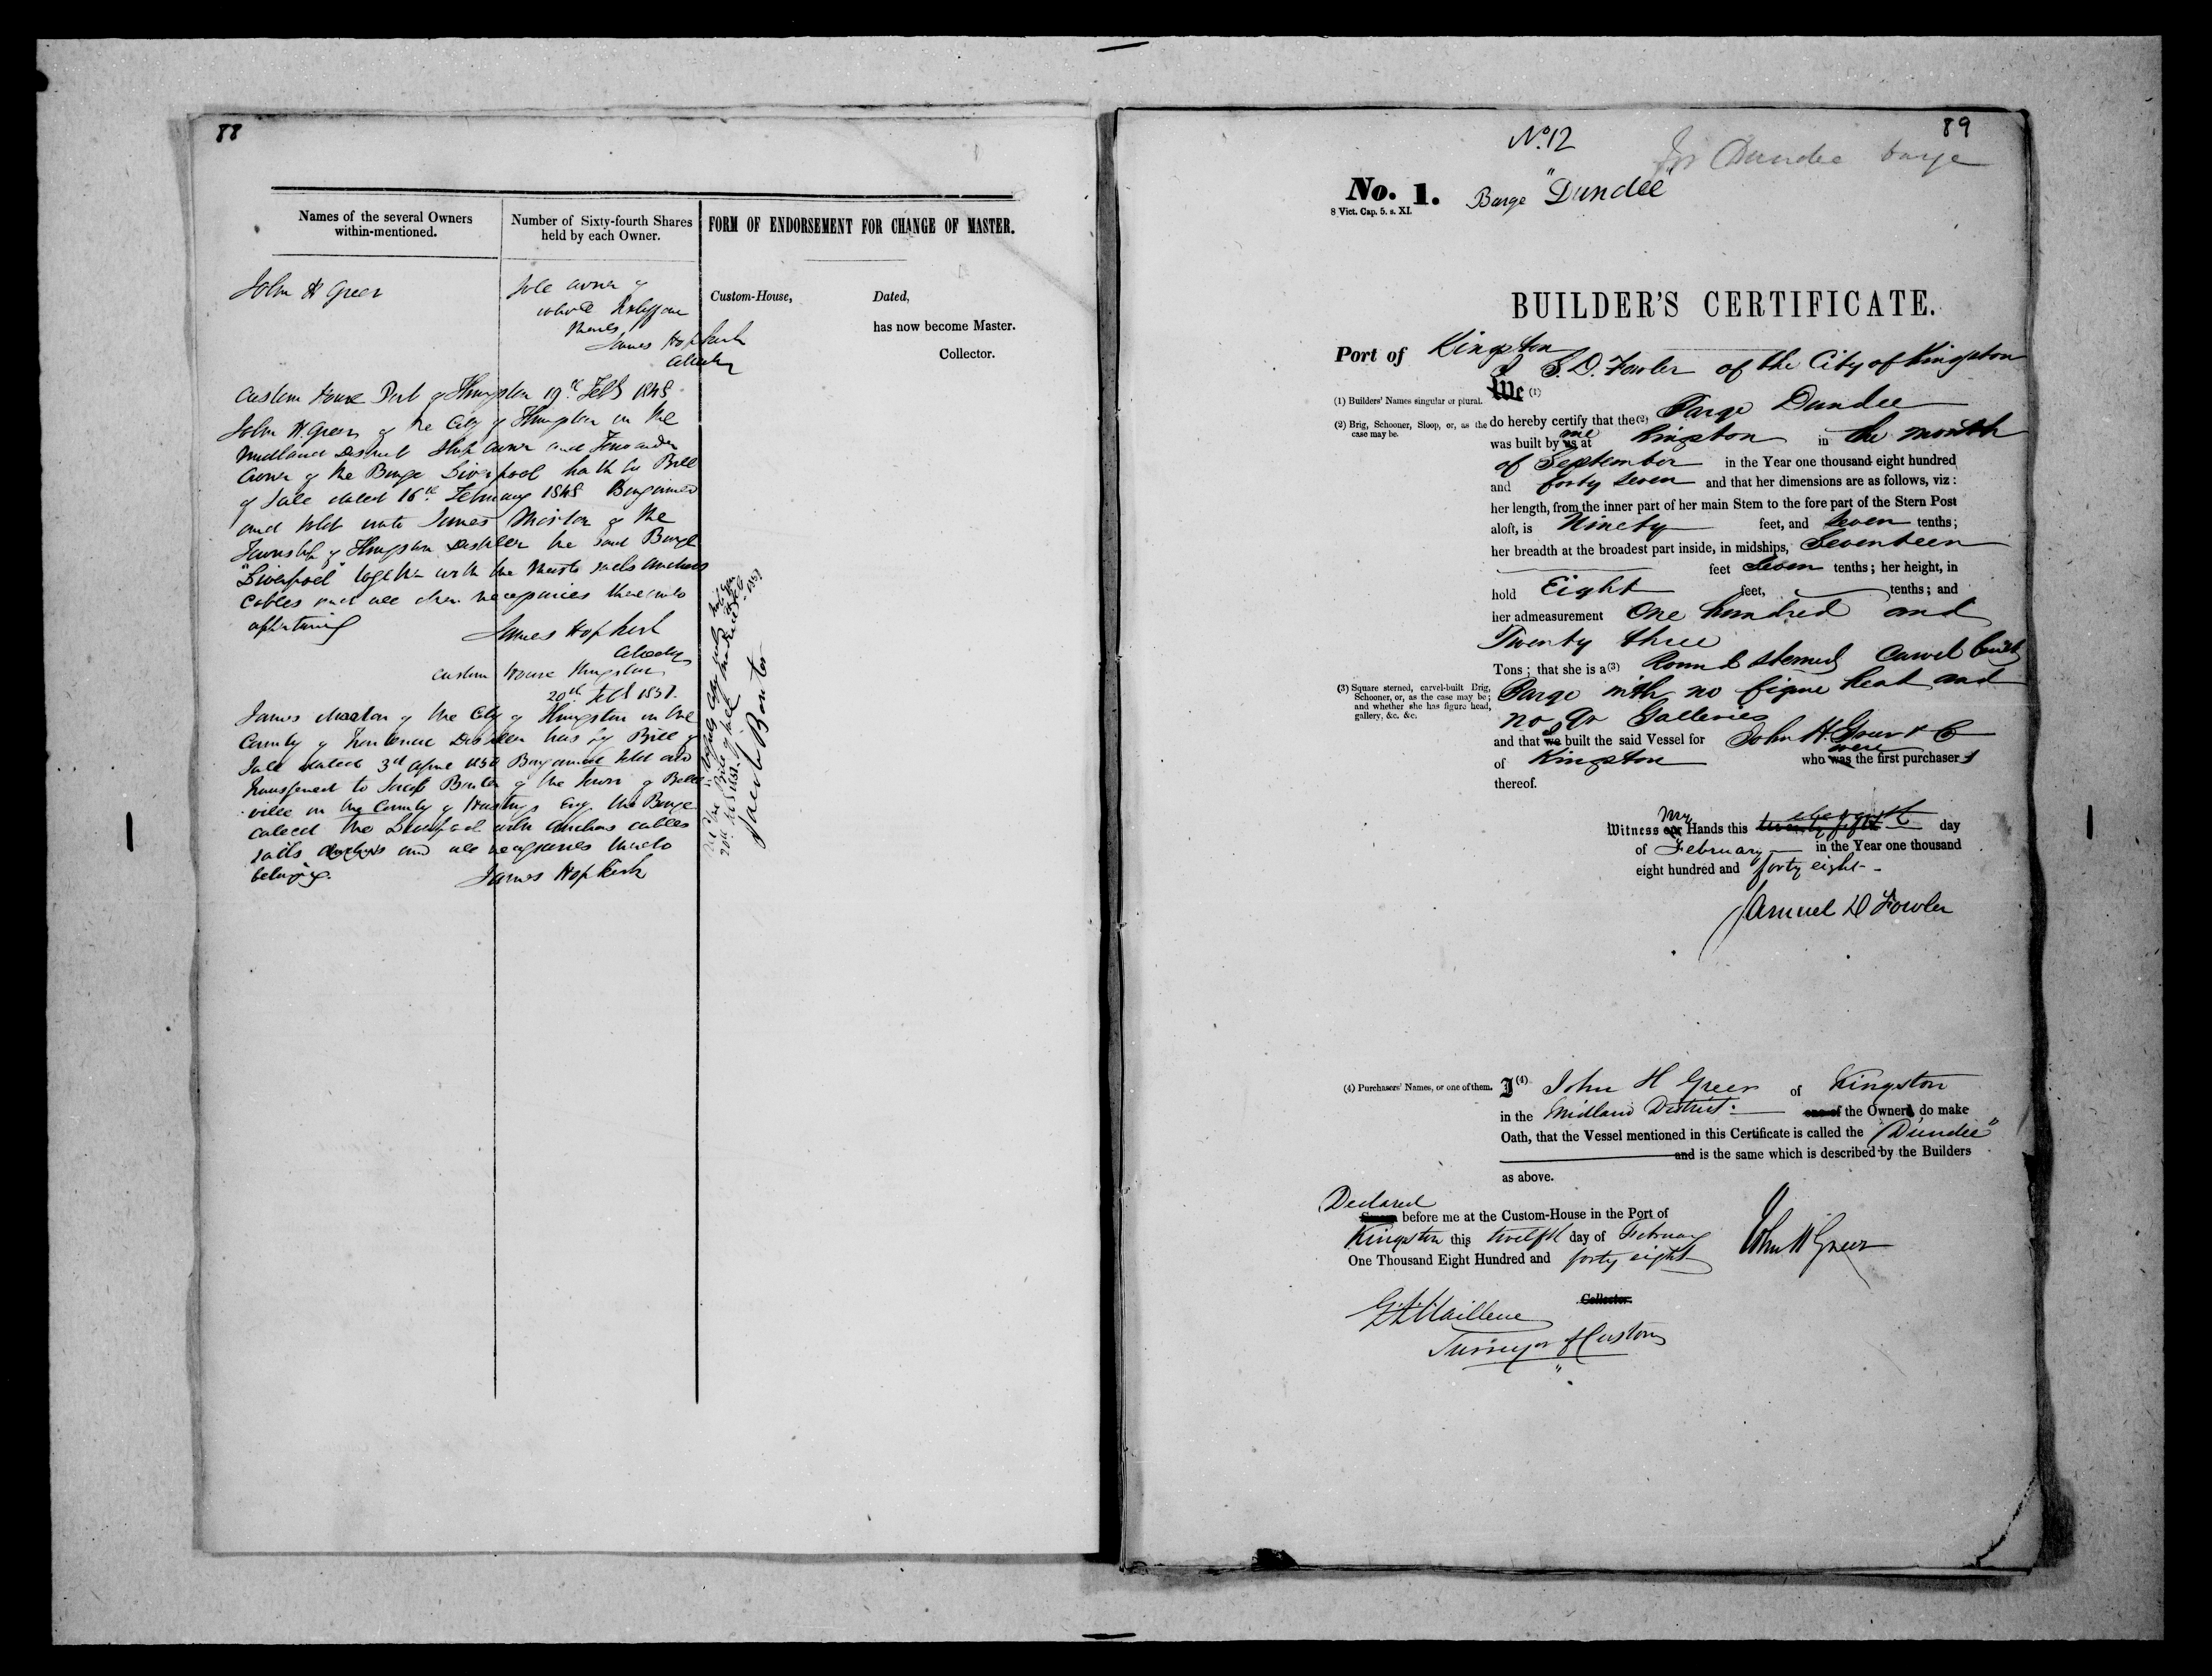 88
Names of the several Owners
within-mentioned.
Number of Sixty-fourth Shares
held by each Owner.
FORM OF ENDORSEMENT FOR CHANGE OF MASTER.
John H Greer
Sole owner of
whole
Shares
James Hopkirk
Collector
Custom-House,
Dated,
has now become Master.
Collector.
Custom House Port of Kingston 19th Feby 1848
John H. Greer of the City of Kingston in the
Midland District Ship owner and Forwarder
Owner of the Barge Liverpool hath by Bill
of Sale dated 16th February 1848 Bargained
and sold unto James Morton of the
Township of Kingston Distiller the said Barge
"Liverpool" together with the Masts sails anchors
Cables and all other necessaries thereunto
appertaining
James Hopkirk
Collector
Custom House Kingston
20th Feby 1851.
James Morton of the City of Kingston in the
County of Frontenac Distiller has by Bill of
Sale dated 3rd April 1850 Bargained sold and
transferred to Jacob Bonter of the Town of Belle
ville in the County of Hastings Esq. the Barge
called the Liverpool with anchors cables
sails and all necessaries thereto
belonging.
James Hopkirk
Jacob Bonter
89
No. 12
for Dundee barge
No. 1.
8 Vict. Cap. 5. s. XI.
Barge "Dundee"
BUILDER'S CERTIFICATE.
Port of Kingston
I S. D. Fowler of the City of Kingston
We (1)
(1) Builders' Names singular or plural.
do hereby certify that the (2) Barge Dundee
(2) Brig, Schooner, Sloop, or, as the
case may be.
was built by us me at Kingston in the month
of September in the Year one thousand eight hundred
and forty seven and that her dimensions are as follows, viz:
her length, from the inner part of her main Stem to the fore part of the Stern Post
aloft, is Ninety feet, and Seven tenths;
her breadth at the broadest part inside, in midships, Seventeen
feet Seven tenths; her height, in
hold Eight feet, tenths; and
her admeasurement One hundred and
Twenty three
Tons; that she is a (3) Round sterned Carvel built
(3) Square sterned, carvel-built Brig,
Schooner, or, as the case may be;
and whether she has figure head,
gallery, &c. &c.
Barge with no figure head and
no Qr Galleries
and that we I built the said Vessel for John H. Greer & Co
of Kingston who was were the first purchasers
thereof.
Witness our My Hands this twenty fifth eleventh day
of February in the Year one thousand
eight hundred and forty eight
Samuel D Fowler
(4) Purchasers' Names, or one of them.
I (4) John H Greer of Kingston
in the Midland District. one of the Owners, do make
Oath, that the Vessel mentioned in this Certificate is called the "Dundee"
and is the same which is described by the Builders
as above.
Declared
Sworn before me at the Custom-House in the Port of
Kingston this twelfth day of February
One Thousand Eight Hundred and forty eight
John H Greer
Collector.
Surveyor of Customs